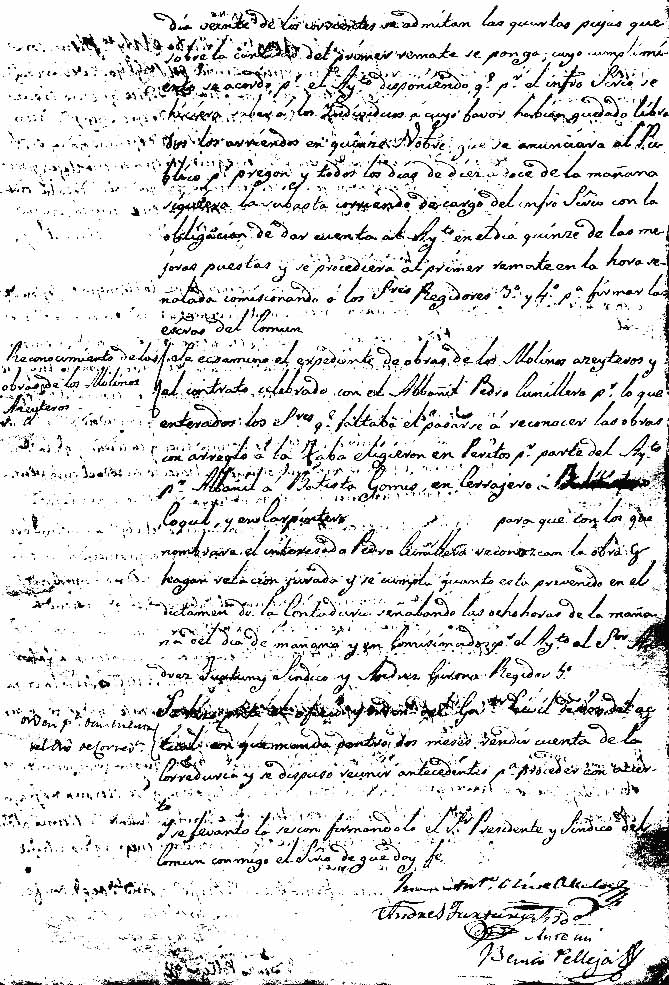 dia veinte de los corrientes se admitan las quartas pujas que
sobre la cantidad del primer remate se ponga, cuyo cumplimi
ento se acordo pr el Ayto disponiendo qe pr el infro Srio se
hiciera saber á los Individuos a cuyo favor habian quedado libra
dos los arriendos en quinze Nobre que se anunciara al Pu
blico pr pregon y todos los dias de diez a doce de la mañana
siguiera la subasta corriendo de cargo del infro Srio con la
obligacion de dar cuenta al Ayto en el dia quinze de las me
joras puestas y se procediera al primer remate en la hora se
ñalada comisionando á los Sres Regidores 3o y 4o pa firmar las
escras del Comun
Reconocimiento de las
obras de los Molinos
Azeyteros
Se ecsamino el expediente de obras de los Molinos azeyteros y
el contrato celebrado con el Albañil Pedro Cunillera pr lo que
enterados los Sres qe faltaba el pasarse á reconocer las obras
con arreglo á la Taba eligieron en Peritos pr parte del Ayto
pr Albañil á Batista Gomis, en Cerrajero á
Coqul, y en Carpintero para que con los que
nombrara el interesado Pedro Cunillera reconozcan la obra y
hagan relacion jurada y se cumpla quanto esta prevenido en el
dictamen de la Contaduria señalando las ocho horas de la maña
na del dia de mañana y en Comisionados pr el Ayto al Sor An
drez Juntuny Sindico y Andrez Girona Regidor 3o
orden pa
del de Corredr
oficio y orden del Gor Civil de
en que manda dentro dos meses rendir cuenta de la
Correduria y se dispuso reunir antecedentes pa proceder con acier
to
y se levanto la secion firmandolo el Sor Presidente y Sindico del
Comun conmigo el Srio de que doy fe
Andres Juntuny Sdo
Ante mi
Pellejá